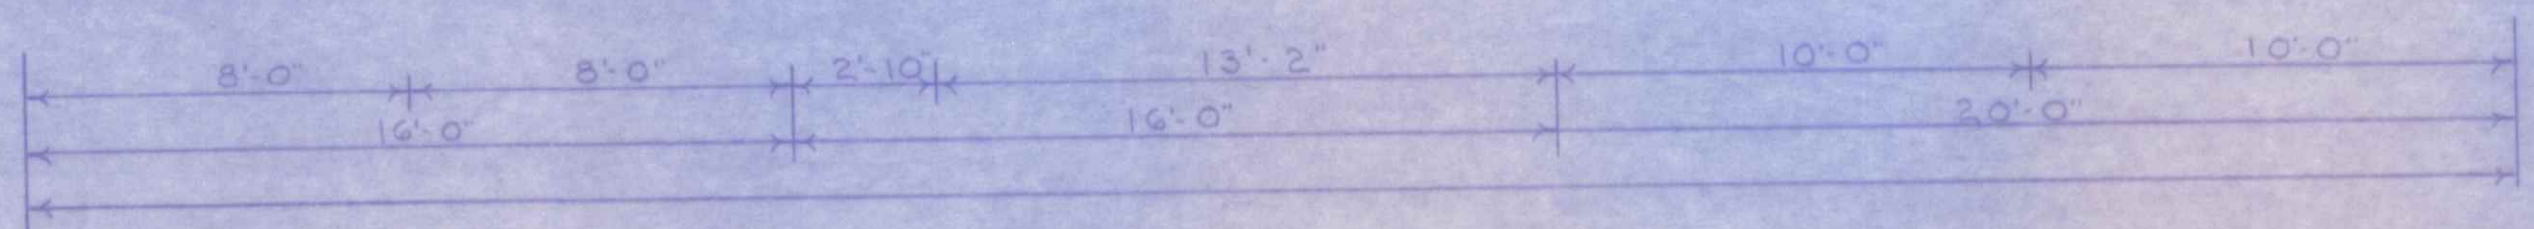 8'-0" 8'-0" 2'-10" 13'-2" 10'-0" 10'-0"
16'-0" 16'-0" 20'-0"